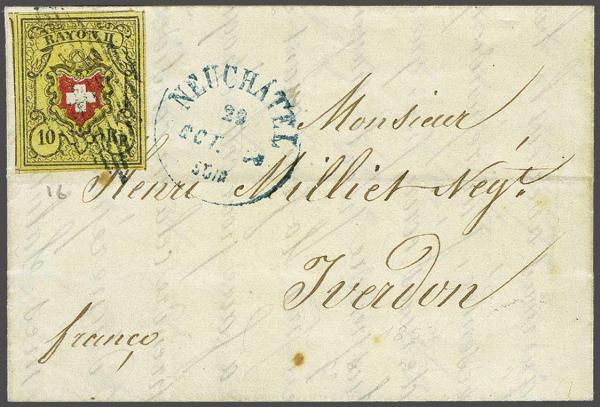 RAYON. II.
10 Rp.
NEUCHÂTEL
22
OCT.
Soir
16
Monsieur
Henri Milliet Negt.
Yverdon
franco